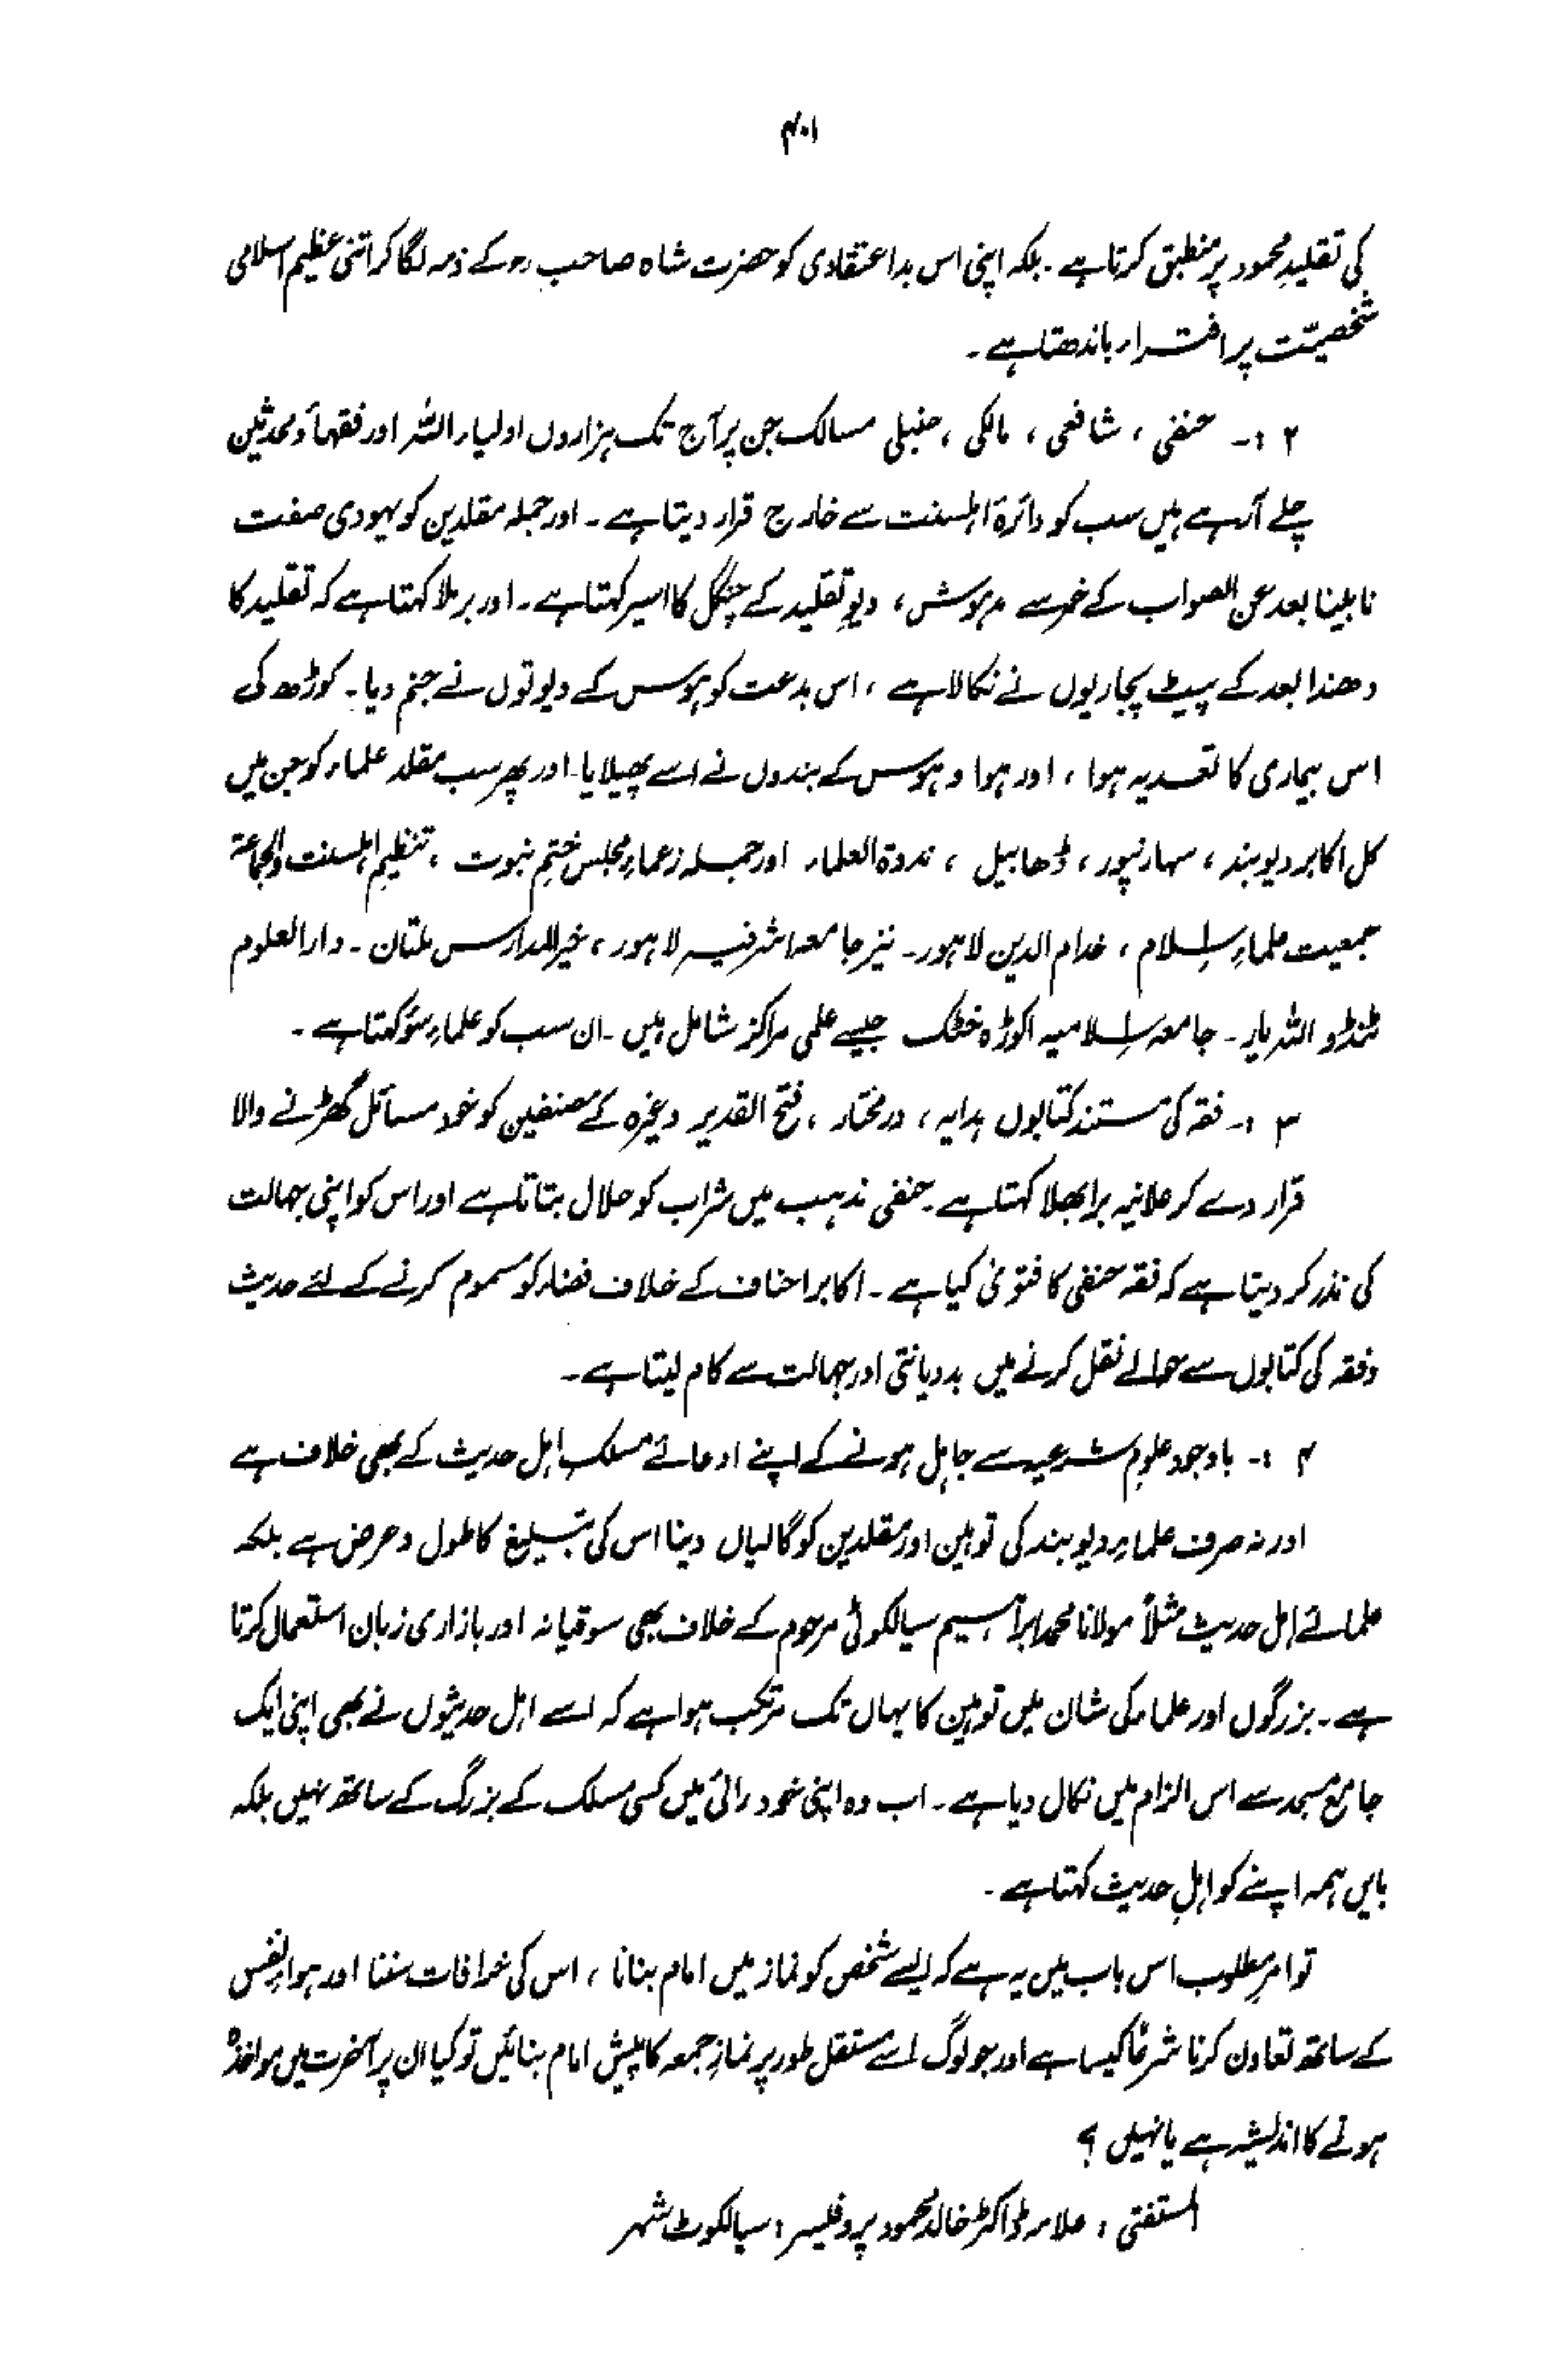 ۴۰۱
کی تقلیدِ محمود پر منطبق کرتا ہے۔ بلکہ اپنی اس بداعتقادی کو حضرت شاہ صاحب رح کے ذمہ لگا کر اتنی عظیم اسلامی
شخصیّت پر افتراء باندھتا ہے۔
۲ :۔ حنفی ، شافعی ، مالکی ، حنبلی مسالک جن پر آج تک ہزاروں اولیاء اللہ اور فقہأ و محدثین
چلے آ رہے ہیں سب کو دائرۃ اہلسنت سے خارج قرار دیتا ہے۔ اور جملہ مقلدین کو یہودی صفت
نابینا بعد عن الصواب کے خمر سے مدہوش ، دیوِ تقلید کے چنگل کا اسیر کہتا ہے۔ اور برملا کہتا ہے کہ تقلید کا
دھندا بعد کے پیٹ پجاریوں نے نکالا ہے ، اس بدعت کو ہوس کے دیوتوں نے جنم دیا۔ کوڑھ کی
اس بیماری کا تعدیہ ہوا ، اور ہوا و ہوس کے بندوں نے اسے پھیلایا۔ اور پھر سب مقلد علماء کو جن میں
کل اکابر دیوبند ، سہارنپور ، ڈھابیل ، ندوۃ العلماء اور جملہ زعماءِ مجلس ختمِ نبوت ، تنظیمِ اہلسنت والجماعۃ
جمعیت علماءِ اسلام ، خدام الدین لاہور۔ نیز جامعہ اشرفیہ لاہور ، خیر المدارس ملتان۔ دارالعلوم
ٹنڈو اللہ یار۔ جامعہ اسلامیہ اکوڑہ خٹک جیسے علمی مراکز شامل ہیں۔ ان سب کو علماءِ سُوٴ کہتا ہے۔
۳ :۔ فقہ کی مستند کتابوں ہدایہ ، درمختار ، فتح القدیر وغیرہ کے مصنفین کو خود مسائل گھڑنے والا
قرار دے کر علانیہ برا بھلا کہتا ہے۔ حنفی مذہب میں شراب کو حلال بتاتا ہے اور اس کو اپنی جہالت
کی نذر کر دیتا ہے کہ فقہ حنفی کا فتویٰ کیا ہے۔ اکابر احناف کے خلاف فضاء کو مسموم کرنے کے لئے حدیث
وفقہ کی کتابوں سے حوالے نقل کرنے میں بددیانتی اور جہالت سے کام لیتا ہے۔
۴ :۔ باوجود علومِ شرعیہ سے جاہل ہونے کے اپنے ادعائے مسلکِ اہل حدیث کے بھی خلاف ہے
اور نہ صرف علماءِ دیوبند کی توہین اور مقلدین کو گالیاں دینا اس کی تبلیغ کا طول و عرض ہے بلکہ
علمائے اہل حدیث مثلاً مولانا محمد ابراہیم سیالکوٹی مرحوم کے خلاف بھی سوقیانہ اور بازاری زبان استعمال کرتا
ہے۔ بزرگوں اور علماء کی شان میں توہین کا یہاں تک مرتکب ہوا ہے کہ اسے اہل حدیثوں نے بھی اپنی ایک
جامع مسجد سے اس الزام میں نکال دیا ہے۔ اب وہ اپنی خود رائی میں کسی مسلک کے بزرگ کے ساتھ نہیں بلکہ
بایں ہمہ اپنے کو اہلِ حدیث کہتا ہے۔
تو امرِ مطلوب اس باب میں یہ ہے کہ ایسے شخص کو نماز میں امام بنانا ، اس کی خرافات سننا اور ہواءِ نفس
کے ساتھ تعاون کرنا شرعًا کیسا ہے اور جو لوگ اسے مستقل طور پر نمازِ جمعہ کا پیش امام بنائیں تو کیا ان پر آخرت میں مواخذہ
ہونے کا اندیشہ ہے یا نہیں ؟
المستفتی : علامہ ڈاکٹر خالد محمود پروفیسر : سیالکوٹ شہر